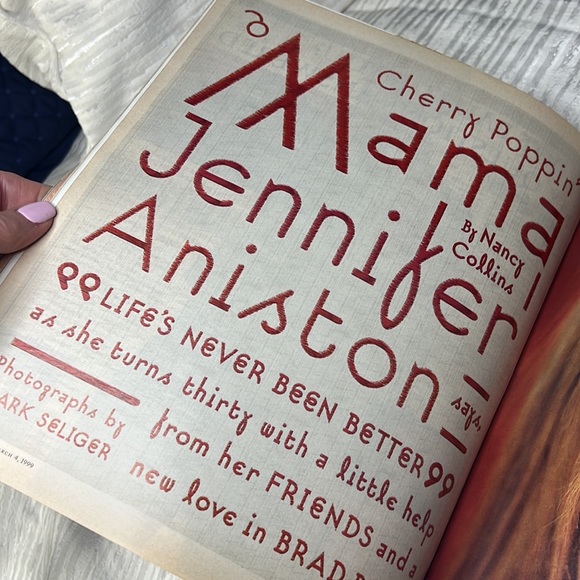 Cherry Poppin'
Mama
Jennifer
By Nancy
Collins
Aniston
says,
"LIFE'S NEVER BEEN BETTER"
as she turns thirty with a little help
from her FRIENDS and a
new love in BRAD
Photographs by
ARK SELIGER
RCH 4, 1999